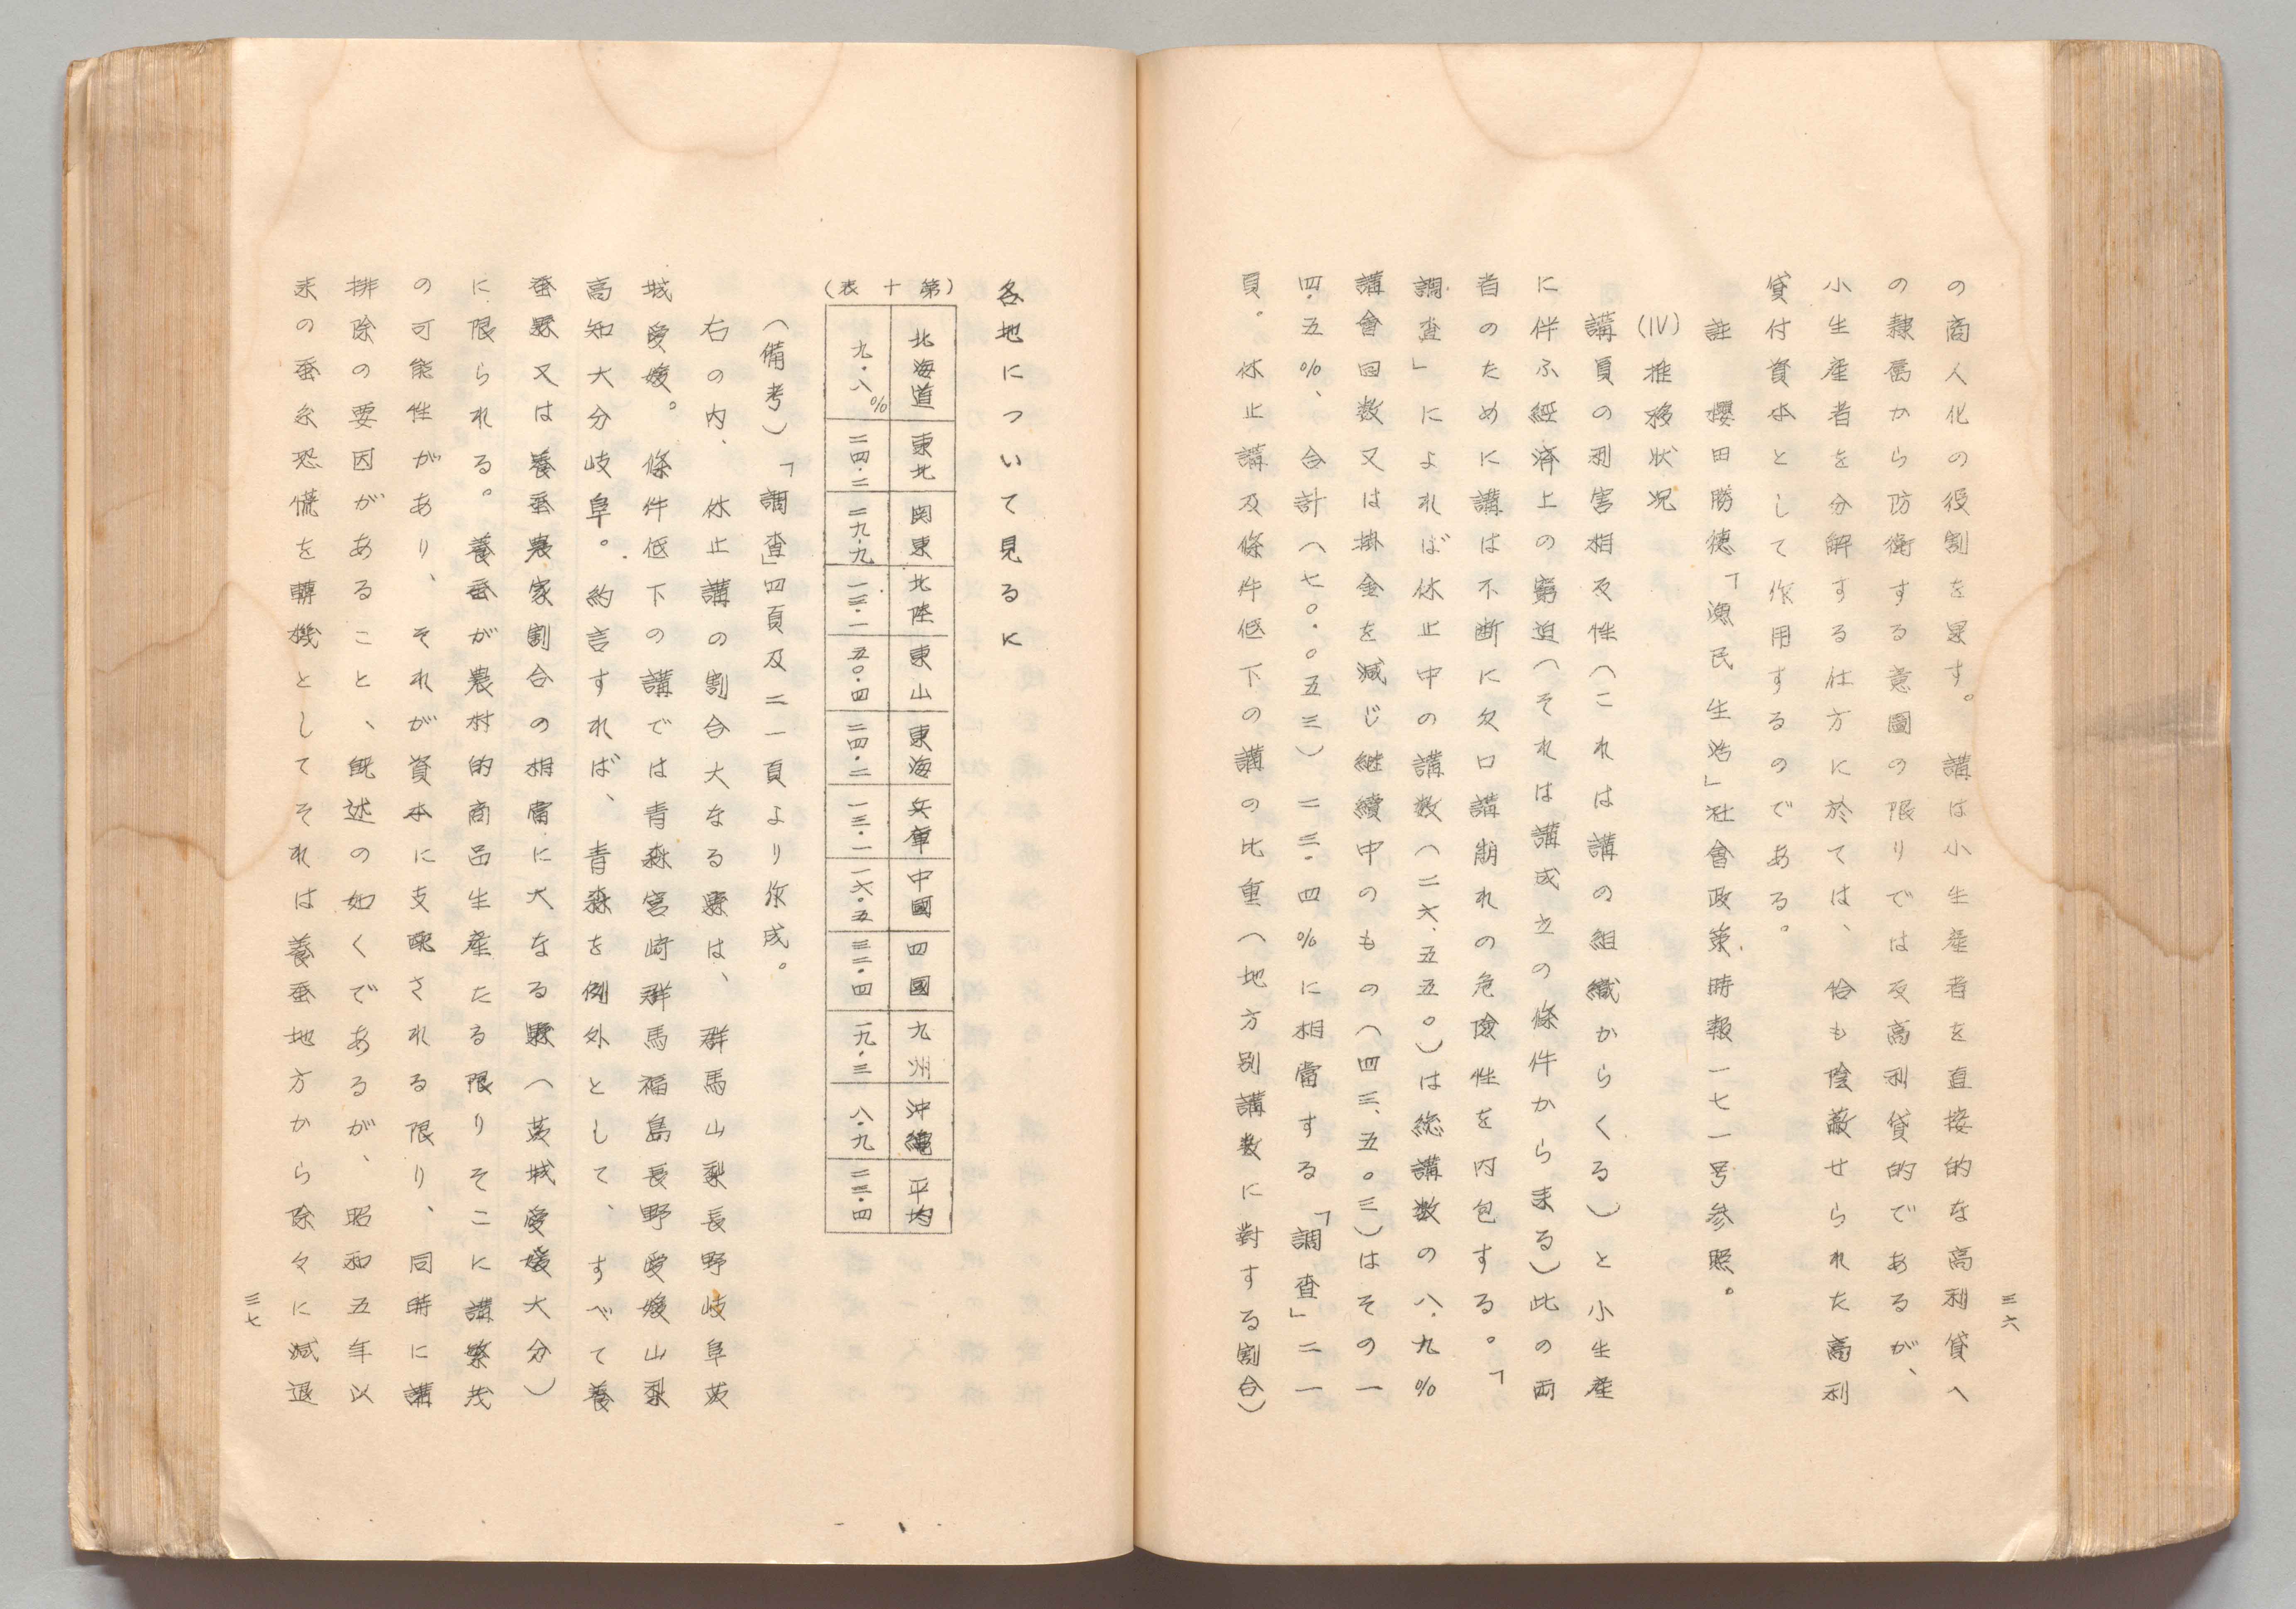 三六
の商人化の役割を果す。講は小生産者を直接的な高利貸へ
の隷属から防衛する意圖の限りでは反高利貸的であるが、
小生産者を分解する仕方に於ては、恰も陰蔽せられた高利
貸付資本として作用するのである。
註 櫻田勝徳「漁民生活」社會政策時報一七一号参照。
(IV) 推移状況
講員の利害相反性(これは講の組織からくる)と小生産
に伴ふ経済上の窮迫(それは講成立の條件から来る)此の両
者のために講は不断に欠口講崩れの危険性を内包する。「
調査」によれば休止中の講数(二六、五五〇)は総講数の八.九%
講會回数又は掛金を減じ継續中のもの(四三、五〇三)はその一
四.五%、合計(七〇.〇五三)二三.四%に相當する「調査」二一
頁。休止講及條件低下の講の比重(地方別講数に對する割合)
各地について見るに
(第十表)
北海道 東北 関東 北陸 東山 東海 兵庫 中國 四國 九州 沖縄 平均
九.八% 二四.二 二九.九 一三.一 五〇.四 二四.二 一三.一 一六.五 三二.四 一九.三 八.九 二三.四
(備考)「調査」四頁及二一頁より作成。
右の内、休止講の割合大なる縣は、群馬山梨長野岐阜茨
城愛媛。條件低下の講では青森宮崎群馬福島長野愛媛山梨
高知大分岐阜。約言すれば、青森を例外として、すべて養
蚕縣又は養蚕農家割合の相當に大なる縣(茨城愛媛大分)
に限られる。養蚕が農村的商品生産たる限りそこに講繁茂
の可能性があり、それが資本に支配される限り、同時に講
排除の要因があること、既述の如くであるが、昭和五年以
来の蚕糸恐慌を轉機としてそれは養蚕地方から除々に減退
三七